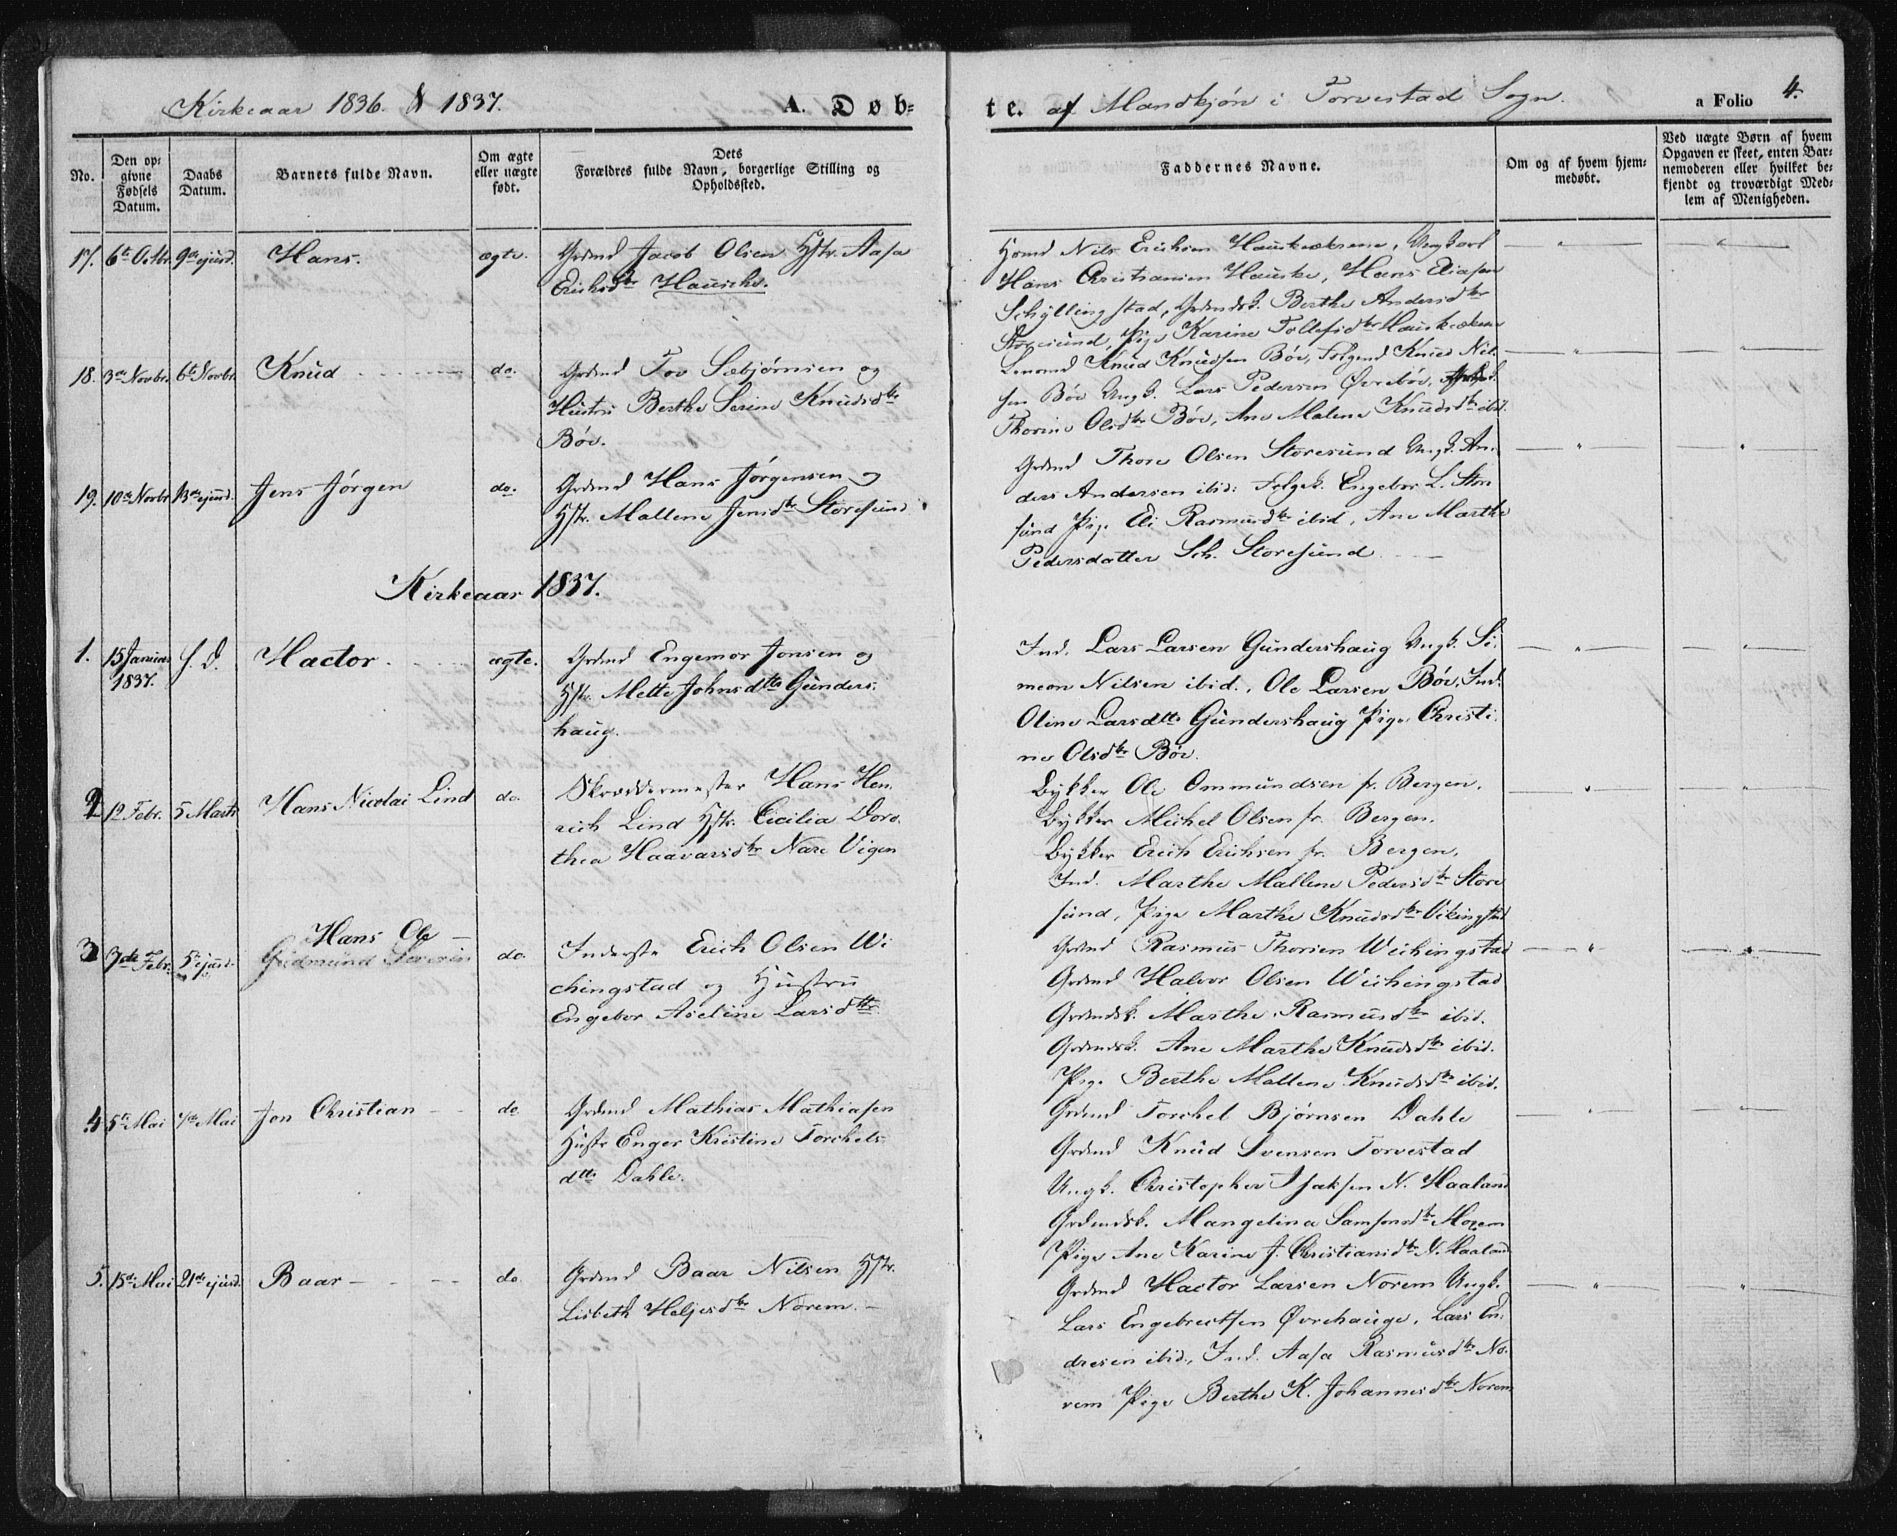 Kirkeaar 1836 & 1837. A. Døb-
te. af Mandkjøn i Torvestad Sogn. a Folio 4.
No.
Den op-
givne
Fødsels
Datum.
Daabs
Datum.
Barnets fulde Navn.
Om ægte
eller uægte
født.
Dets
Forældres fulde Navn, borgerlige Stilling og
Opholdssted.
Faddernes Navne.
Om og af hvem hjem-
medøbt.
Ved uægte Børn af hvem
Opgaven er skeet, enten Bar-
nemoderen eller hvilket be-
kjendt og troværdigt Med-
lem af Menigheden.
17. 6te Octbr. 9de ejusd. Hans. ægte. Grdmd Jacob Olsen Hstr. Aasa
Erichsdtr Hauske.
Hsmd Nils Erichsen, Ungkarl
Hans Christiansen Hauske, Hans Eliasen
Schyllingstad, Grdmdsk. Berthe Andersdtr
Storesund, Pige Karine Tollefsdtr
18. 3de Novbr. 6te Novbr. Knud do. Grdmd Tov Sæbjørnsen og
Hustru Berthe Serine Knudsdtr
Bøe.
Lensmd Knud Knudsen Bøe, Knud Nil-
sen Bøe Ungk. Lars Pedersen Øvrebøe,
Thorine Olsdtr Bøe, Ane Malene Knudsdtr ibid.
19. 10de Novbr. 13de ejusd. Jens Jørgen do. Grdmd Hans Jørgensen og
Hstr. Mallene Jensdtr Storesund.
Grdmd Thore Olsen Storesund Ungk. An-
ders Andersen ibid: Engebor L. Store
sund Pige Eli Rasmusdtr ibid, Ane Marthe
Pedersdatter Sch. Storesund
Kirkeaar 1837.
1. 15 Januar
1837. s. D. Hactor. ægte. Grdmd Engemor Jonsen og
Hstr. Mette Johnsdtr Gunders-
haug.
Ind. Lars Larsen Gundershaug Ungk. Si-
meon Nilsen ibid., Ole Larsen Bøe, Ind.
Oline Larsdtr Gundershaug Pige Christi-
ne Olsdtr Bøe.
2 12 Febr. 5 Marts Hans Nicolai Lind do. Skræddermester Hans Hen-
rich Lind Hstr. Cicilia Doro-
thea Haavarsdtr Nare Vigen
Bykker Ole Ommundsen fr. Bergen.
Bykker Michel Olsen fr. Bergen.
Bykker Erich Erichsen fr. Bergen.
Ind. Marthe Mallene Pedersdtr Store
sund, Pige Marthe Knudsdtr Vikingstad
3 7de Febr. 5te ejusd. Hans Ole
Gudmund Severin do. Inderste Erich Olsen Wi
chingstad og Hustru
Engebor Aseline Larsdtr.
Grdmd Rasmus Thorsen Wichingstad
Grdmd Halvor Olsen Wichingstad
Grdmdsk. Marthe Rasmusdtr ibid.
Grdmdsk. Ane Marthe Knudsdtr ibid.
Pige Berthe Mallene Knudsdtr ibid.
4 5te Mai 7de Mai Jon Christian do Grdmd Mathias Mathiasen
Hustr Enger Kristine Torchels-
dtr Dahle.
Grdmd Torchel Bjørnsen Dahle
Grdmd Knud Svensen Torvestad
Ungk. Christopher Isaksen N. Haaland
Grdmdsk. Mangelina Samsonsdtr Norem
Pige Ane Karine J. Christiansdtr N. Haaland
5. 15de Mai 21de ejusd. Baar do Grdmd Baar Nilsen Hstr.
Lisbeth Heljesdtr Norem.
Grdmd Hactor Larsen Norem Ungk.
Lars Engebrectsen Øvrehauge, Lars En-
dresen ibid., Ind. Aasa Rasmusdtr No-
rem Pige Berthe K. Johannesdtr Norem